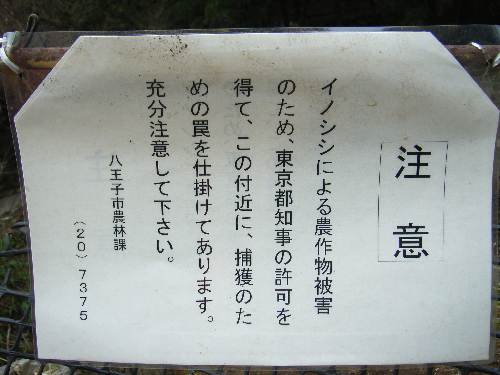 注意
イノシシによる農作物被害
のため、東京都知事の許可を
得て、この付近に、捕獲のた
めの罠を仕掛けてあります。
充分注意して下さい。
八王子市農林課
(20)7375